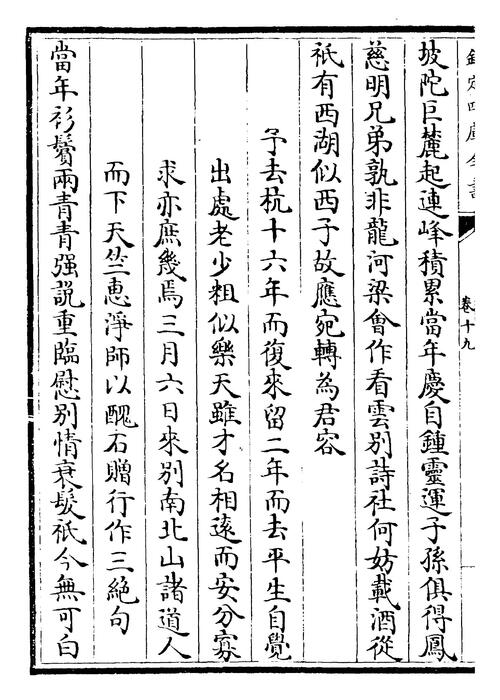 欽定四庫全書
卷十九
坡陀巨麓起連峰積累當年慶自鍾靈運子孫俱得鳳
慈明兄弟孰非龍河梁會作看雲别詩社何妨載酒從
祇有西湖似西子故應宛轉為君容
予去杭十六年而復來留二年而去平生自覺
出處老少粗似樂天雖才名相遠而安分寡
求亦庶幾焉三月六日來别南北山諸道人
而下天竺惠淨師以醜石贈行作三絶句
當年衫鬢兩青青强説重臨慰别情衰髮祇今無可白